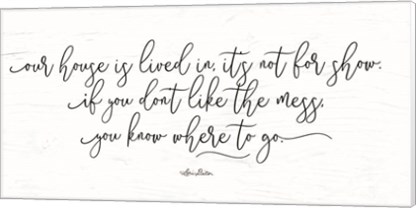 our house is lived in, it's not for show.
if you dont like the mess,
you know where to go.